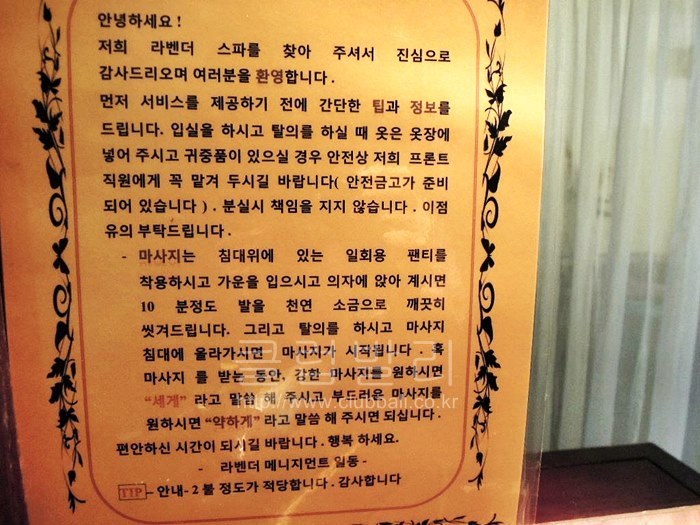 안녕하세요 !
저희 라벤더 스파를 찾아 주셔서 진심으로
감사드리오며 여러분을 환영합니다 .
먼저 서비스를 제공하기 전에 간단한 팁과 정보를
드립니다. 입실을 하시고 탈의를 하실 때 옷은 옷장에
넣어 주시고 귀중품이 있으실 경우 안전상 저희 프론트
직원에게 꼭 맡겨 두시길 바랍니다( 안전금고가 준비
되어 있습니다 ) . 분실시 책임을 지지 않습니다 . 이점
유의 부탁드립니다 .
- 마사지는 침대위에 있는 일회용 팬티를
착용하시고 가운을 입으시고 의자에 앉아 계시면
10 분정도 발을 천연 소금으로 깨끗히
씻겨드립니다. 그리고 탈의를 하시고 마사지
침대에 올라가시면 마사지가 시작됩니다 . 혹
마사지 를 받는 동안, 강한 마사지를 원하시면
"세게" 라고 말씀 해 주시고 부드러운 마사지를
원하시면 "약하게" 라고 말씀 해 주시면 되십니다 .
편안하신 시간이 되시길 바랍니다 . 행복 하세요.
- 라벤더 메니지먼트 일동 -
TIP – 안내- 2 불 정도가 적당합니다 . 감사합니다
클럽발리
http://www.clubbali.co.kr